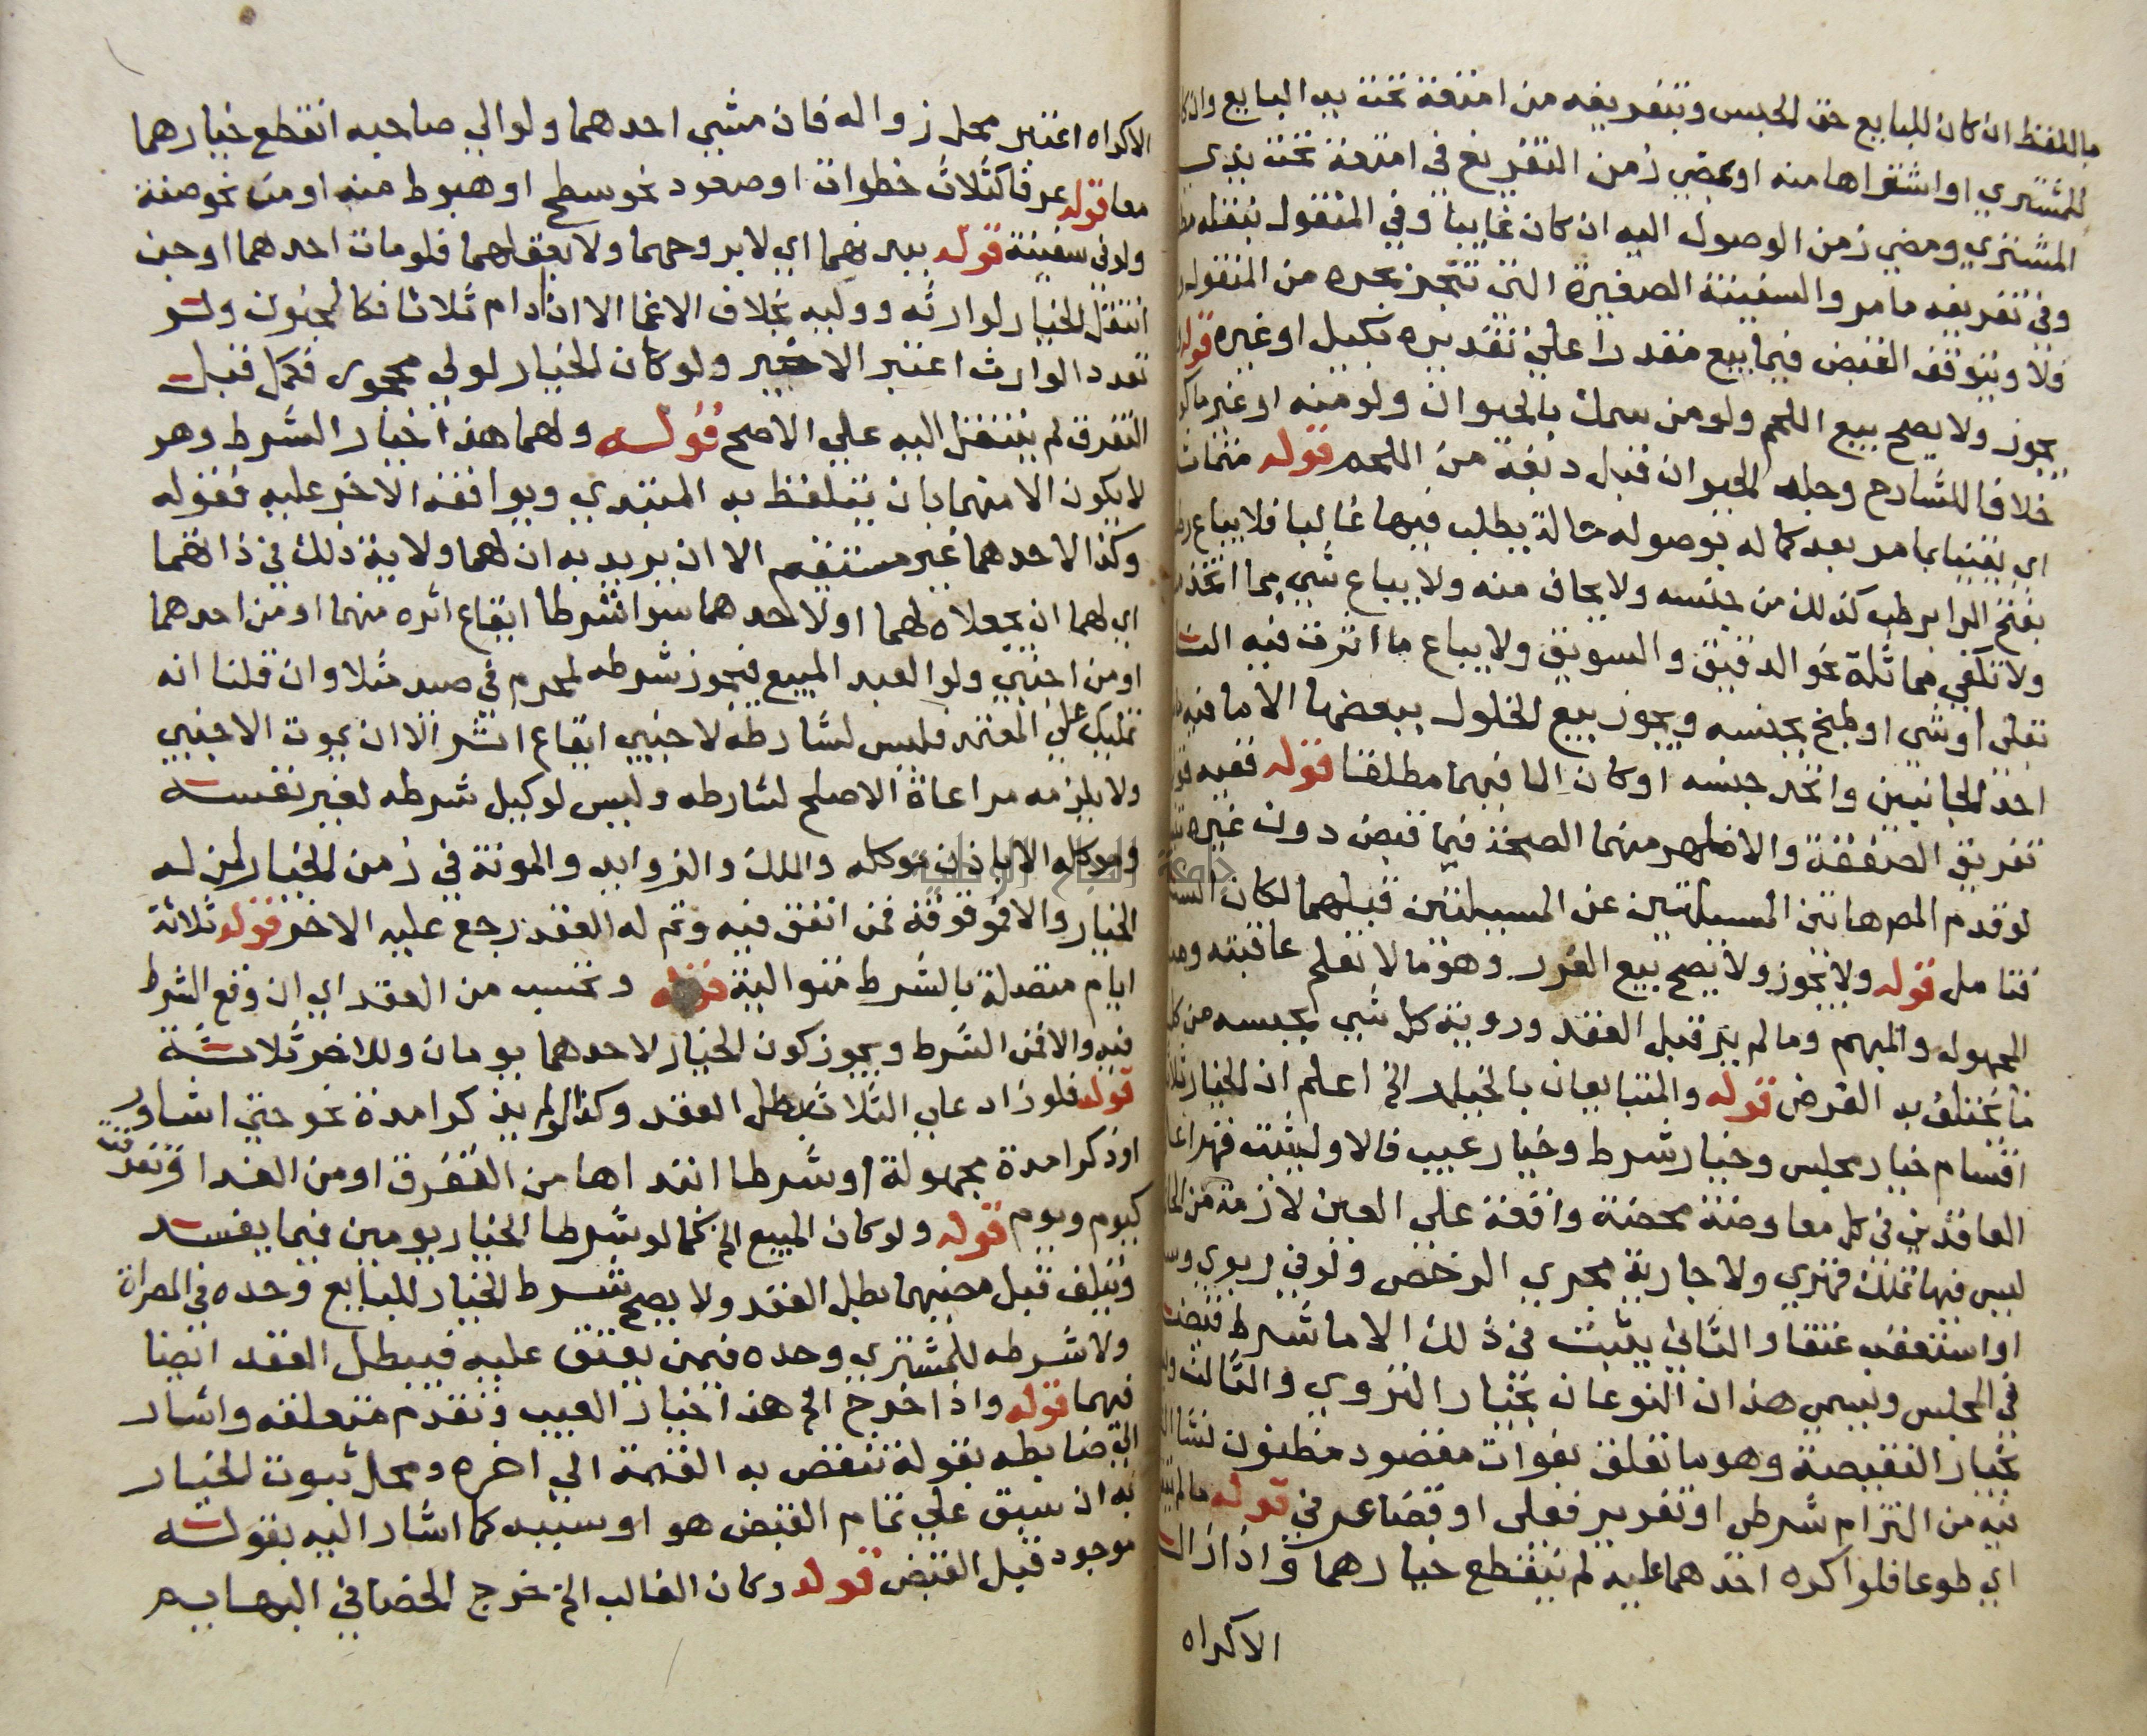 باللفظ ان كان للبايع حق الحبس وبتفريغه من امتعة تحت يد البايع وان كا
للمشتري او اشتراها منه او بمضي زمن التفريغ في امتعة تحت يدي
المشتري ومضي زمن الوصول اليه ان كان غايبا وفي المنقول بنقله
وفي تفريغه ما مر والسفينة الصغيرة التي تنجر بجره من المنقول
فلا ويتوقف القبض فيما بيع مقدرا علي تقديره بكيل او غيره قوله
يجوز ولا يصح بيع اللحم ولو من سمك بالحيوان ولو منه او غير ماكو
خلافا للشارح وجله الحيوان قبل دبغه من اللحم قوله
اي يقينا بما مر بعد كماله بوصوله حالة يطلب فيها غالبا فلا يباع رطب
بفتح الرا برطب كذلك من جنسه ولا بجاف منه ولا يباع شي مما اتخذ
ولا تكفي مماثلة نحو الدقيق والسويق ولا يباع ما اثرت فيه النا
بقلي او شي او طبخ بجنسه ويجوز بيع الخلول ببعضها الا ما فيه
احد الجانبين واتحد جنسه او كان الما فيهما مطلقا قوله ففيه قو
تفريق الصفقة والاظهر منهما الصحة فيما قبض دون غيره
لو قدم المص هاتين المسيلتين عن المسيلتين قبلهما لكان انسب
فتامل قوله ولا يجوز ولا يصح بيع الغرر وهو ما لا تعلم عاقبته ومنه
المجهول والمبهم وما لم ير قبل العقد وروية كل شي بحبسه من كل
ما يختلف به الغرض قوله والمتبايعان بالخيار الخ اعلم ان الخيار ثلا
اقسام خيار مجلس وخيار شرط وخيار عيب فالاول يثبت قهرا عل
العاقدين في كل معاوضة محضة واقعة علي العين لازمة من الجا
ليس فيها تملك قهري ولا جارية مجري الرخص ولو في ربوي وس
او استعقب عتقا والثاني يثبت في ذلك الا ما شرط قبضه
في المجلس ويسمي هذان النوعان بخيار التروي والثالث
بخيار النقيصة وهو ما تعلق بفوات مقصود مظنون نشا ال
فيه من التزام شرطي او تغرير فعلي او قضا عرفي قوله ما لم
اي طوعا فلو اكره احدهما عليه لم ينقطع خيارهما واذا زال
الاكراه
الاكراه اعتبر محل زواله فان مشي احدهما ولو الي صاحبه انقطع خيارهما
معا قوله عرفا كثلاث خطوات او صعود نحو سطح او هبوط منه او من نحو صفة
ولو في سفينة قوله ببدنهما اي لا بروحهما ولا بعقلهما فلو مات احدهما او جن
انتقل الخيار لوارثه ووليه بخلاف الاغما الا ان دام ثلاثا فكالجنون ولو
تعدد الوارث اعتبر الاخير ولو كان الخيار لولي محجور فكمل قبل
التفرق لم ينتقل اليه علي الاصح قوله ولهما هذا خيار الشرط وهو
لا يكون الا منهما بان يتلفظ به المبتدي ويوافقه الاخر عليه فقوله
وكذا لاحدهما غير مستقيم الا ان يريد به ان لهما ولاية ذلك في ذاتهما
اي لهما ان يجعلاه لهما او لاحدهما سوا شرطا ايقاع اثره منهما او من احدهما
او من اجنبي ولو العبد المبيع فيجوز شرطه لمحرم في صيد مثلا وان قلنا انه
تمليك علي المعتمد فليس لشارطه لاجنبي ايقاع اثر الا ان يموت الاجنبي
ولا يلزمه مراعاة الاصلح لشارطه وليس لوكيل شرطه لغير نفسه
وموكله الا باذن موكله والملك والزوايد والمونة في زمن الخيار لمن له
الخيار والا فموقوفة فمن انفق فيه وتم له العقد رجع عليه الاخر قوله ثلاثة
ايام متصلة بالشرط متوالية قوله وتحسب من العقد اي ان وقع الشرط
فيه والا فمن الشرط ويجوز كون الخيار لاحدهما يومان وللاخر ثلاثة
قوله فلو زاد علي الثلاث بطل العقد وكذا لو لم يذكرا مدة نحو حتي اشاور
او ذكرا مدة مجهولة او شرطا ابتداها من التفرق او من الغد او تفرقت
كيوم ويوم قوله ولو كان المبيع الخ كما لو شرطا الخيار يومين فيما يفسد
ويتلف قبل مضيهما بطل العقد ولا يصح شرط الخيار للبايع وحده في المصراة
ولا شرطه للمشتري وحده فيمن يعتق عليه فيبطل العقد ايضا
فيهما قوله واذا خرج الخ هذا خيار العيب وتقدم متعلقه واشار
الي ضابطه بقوله تنقص به القيمة الي اخره ومحل ثبوت الخيار
به ان سبق علي تمام القبض هو او سببه كما اشار اليه بقوله
موجود قبل القبض قوله وكان الغالب الخ خرج الخصا في البهايم